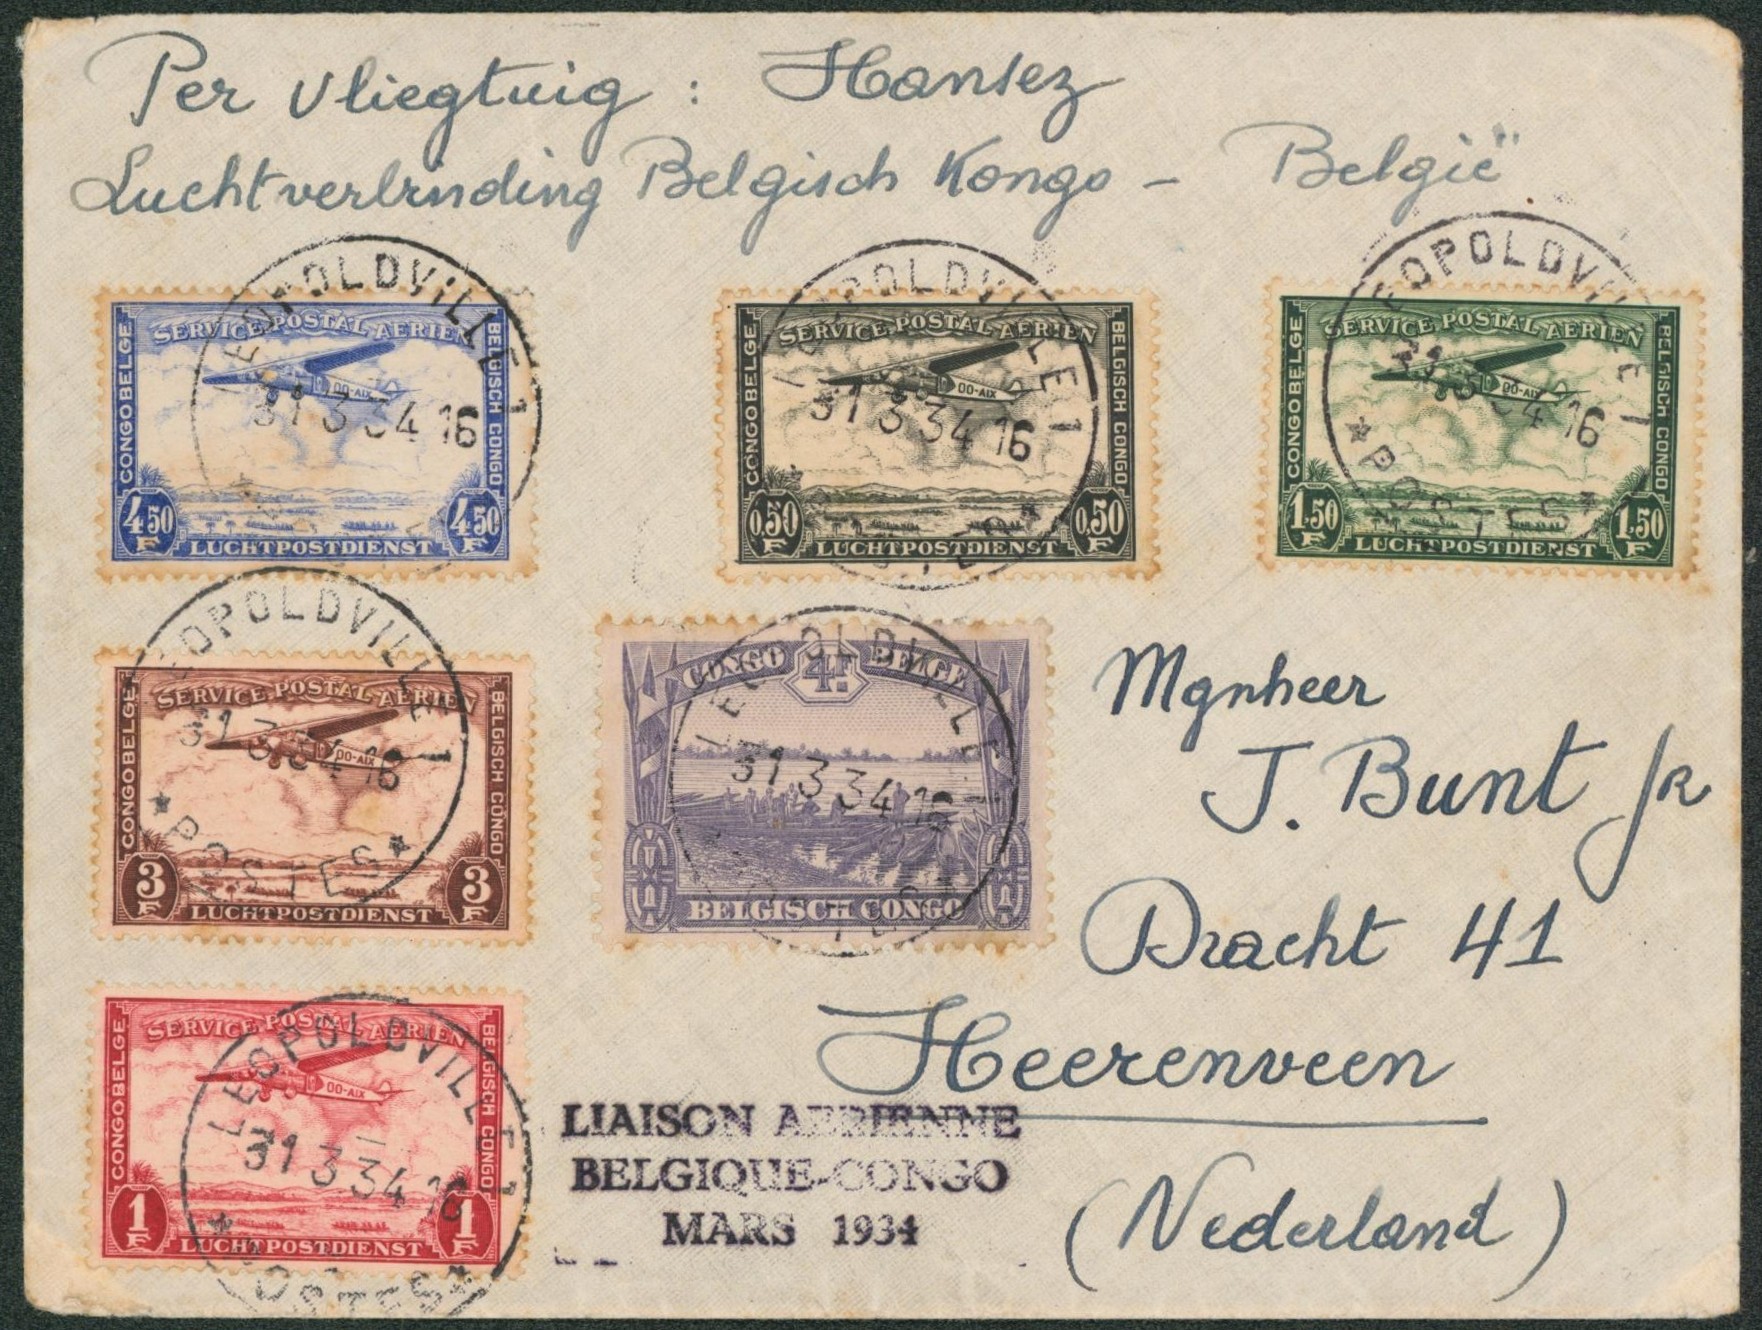 Per vliegtuig : Hansez
Luchtverbinding Belgisch Kongo - België
LEOPOLDVILLE 1
31 3 34 16
SERVICE POSTAL AERIEN
CONGO BELGE
BELGISCH CONGO
OO-AIX
4,50 F
4,50 F
LUCHTPOSTDIENST
LEOPOLDVILLE 1
31 3 34 16
SERVICE POSTAL AERIEN
CONGO BELGE
BELGISCH CONGO
OO-AIX
0,50 F
0,50 F
LUCHTPOSTDIENST
LEOPOLDVILLE 1
31 3 34 16
* POSTES *
SERVICE POSTAL AERIEN
CONGO BELGE
BELGISCH CONGO
OO-AIX
1,50 F
1,50 F
LUCHTPOSTDIENST
LEOPOLDVILLE 1
31 3 34 16
* POSTES *
SERVICE POSTAL AERIEN
CONGO BELGE
BELGISCH CONGO
OO-AIX
3 F
3 F
LUCHTPOSTDIENST
LEOPOLDVILLE 1
31 3 34 16
CONGO BELGE
4F.
BELGISCH CONGO
Mynheer
J. Bunt Jr
Dracht 41
Heerenveen
(Nederland)
LEOPOLDVILLE 1
31 3 34 16
* POSTES *
SERVICE POSTAL AERIEN
CONGO BELGE
BELGISCH CONGO
OO-AIX
1 F
1 F
LUCHTPOSTDIENST
LIAISON AERIENNE
BELGIQUE-CONGO
MARS 1934